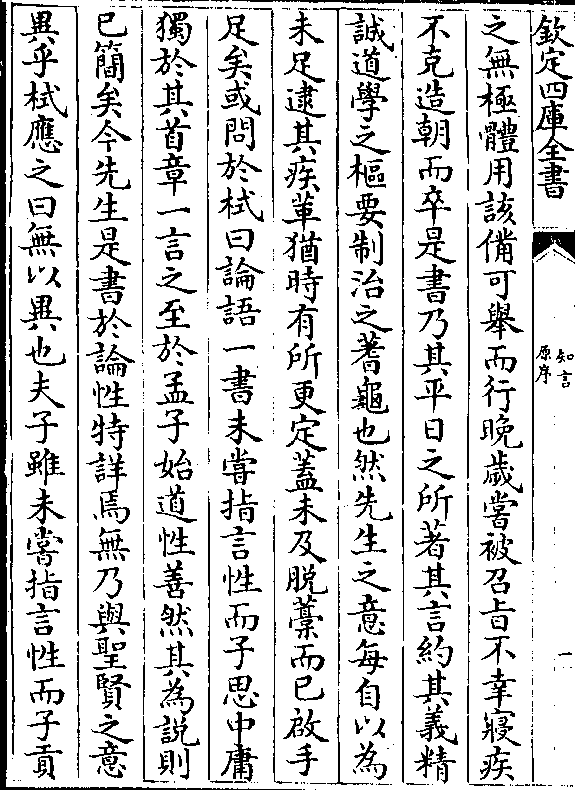 欽定四庫全書
知言
原序
一
之無極體用該備可舉而行晚歲嘗被召㫖不幸寢疾
不克造朝而卒是書乃其平日之所著其言約其義精
誠道學之樞要制治之蓍龜也然先生之意每自以為
未足逮其疾革猶時有所更定蓋未及脱藁而已啟手
足矣或問於栻曰論語一書未嘗指言性而子思中庸
獨於其首章一言之至於孟子始道性善然其為説則
已簡矣今先生是書於論性特詳焉無乃與聖賢之意
異乎栻應之曰無以異也夫子雖未嘗指言性而子貢